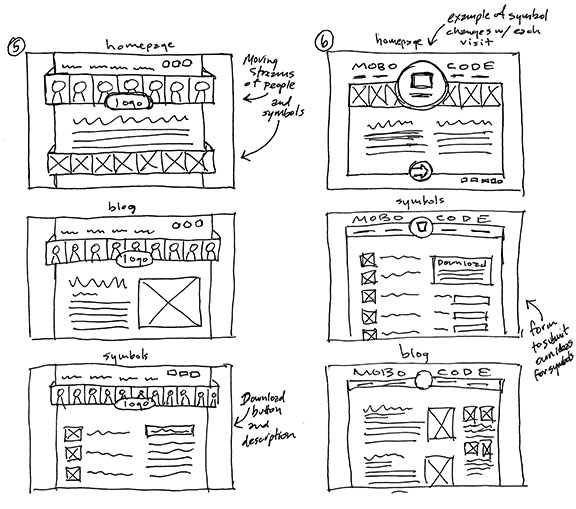 5
homepage
logo
Moving
Streams
of people
and
symbols
blog
logo
symbols
logo
Download
button
and
description
6
example of symbol
changes w/ each
visit
homepage
MOBO CODE
symbols
MOBO CODE
Download
form
to submit
own ideas
for symbols
blog
MOBO CODE